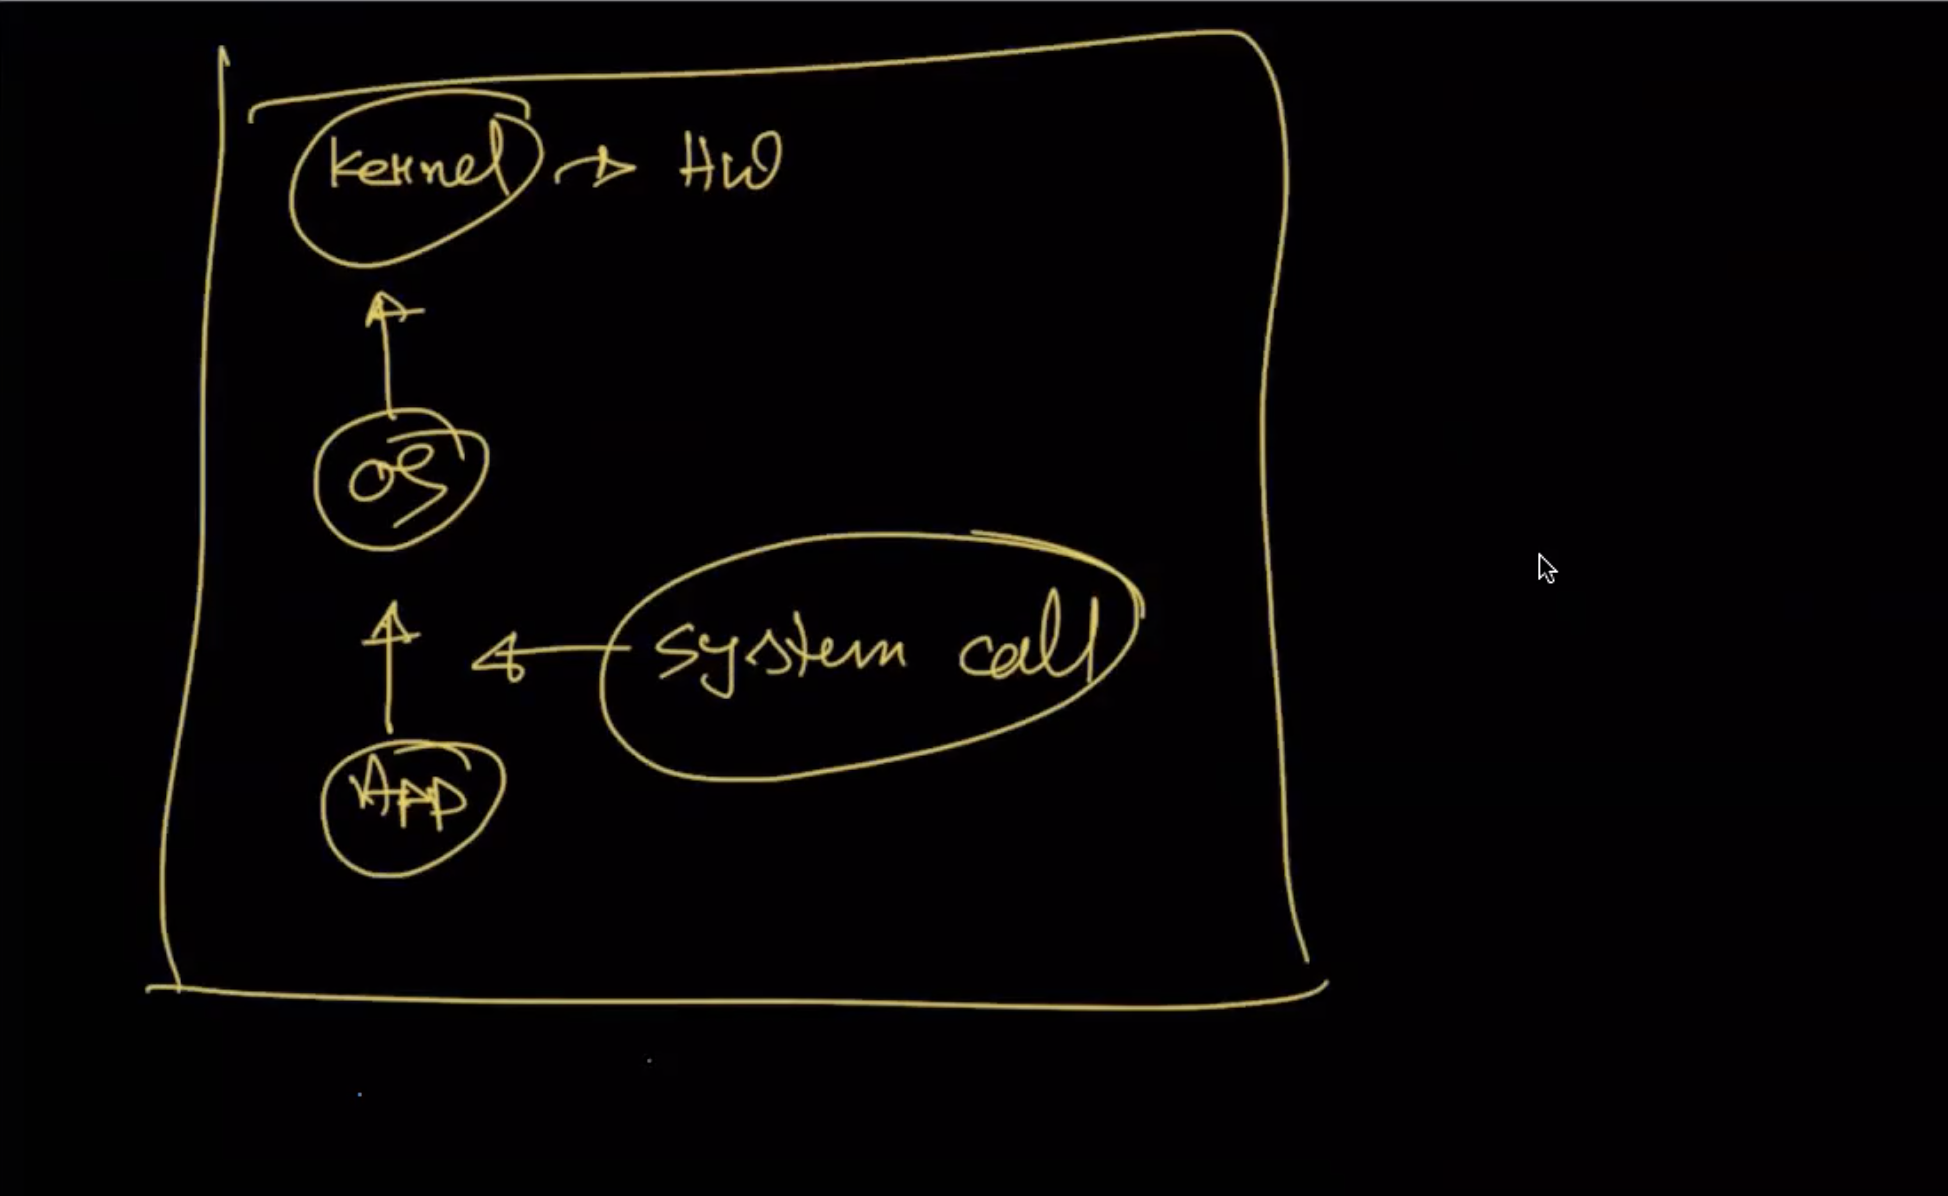 kernel → HW
OS
system call
App